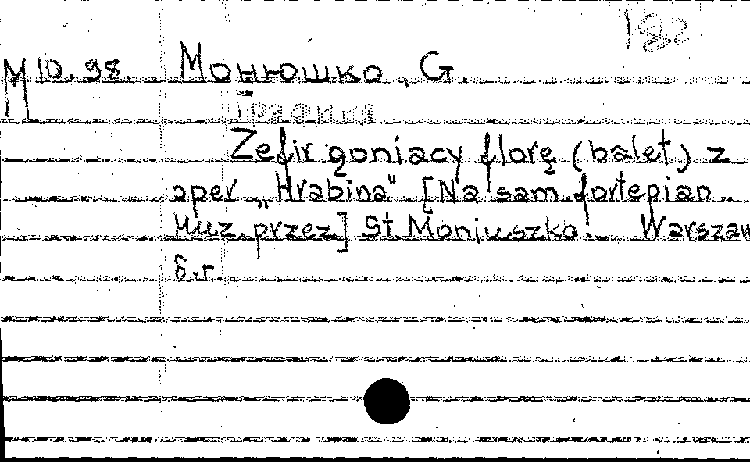 182
М 10.98. Монюшко, G.
Zefir goniacy florę (balet) z
oper „Hrabina" [Na sam fortepian
Muz. przez] St Moniuszko. Warszaw
б.г.